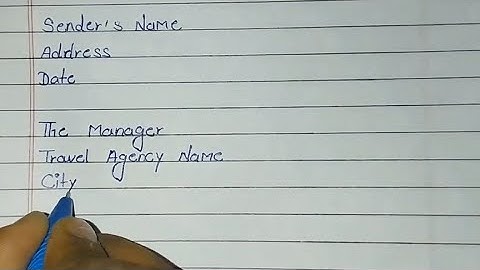 Sender's Name
Address
Date
The Manager
Travel Agency Name
City